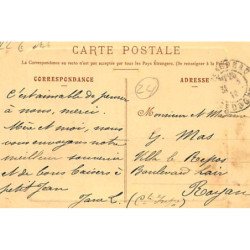 CARTE POSTALE
La Correspondance au recto n'est pas acceptée par tous les Pays Étrangers. (Se renseigner à la
CORRESPONDANCE
ADRESSE
24
C'est aimable de penser
à nous, merci.
Mère et moi, nous vous
envoyons notre
meilleur souvenir
et de bons baisers à
petit Jean
Jane L.
Monsieur et Madame
Y. Mas
Villa le Repos
Boulevard
Royan